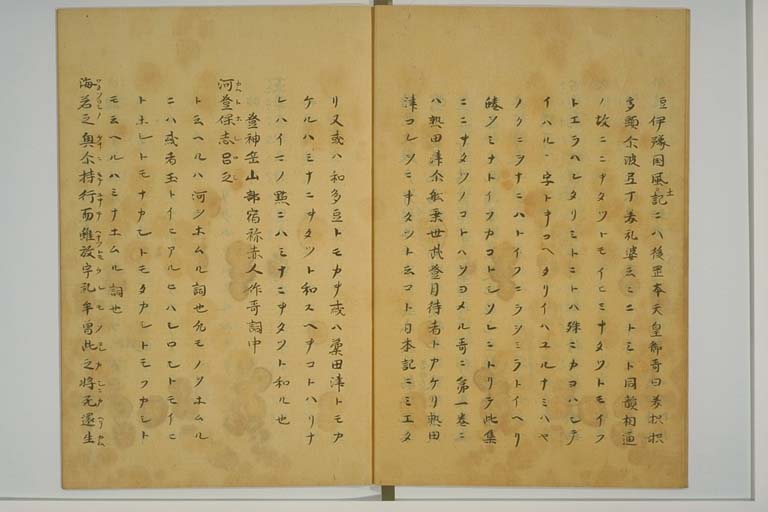 伊豫国風土記ニハ後岡本天皇御哥曰
ノ故ニニキタツトモイヒミナキタツトモイフ
トエラハレタリミトニトハ殊ニカヨハシテ
イハル字トキコヘタリイハユルナミハヤ
ノクニヲナニハトイフニラシミラトイヘリ
ソミナトイフカコトシソレニトリテ此集
ニニキタツノコトハヲヨメル哥ニ第一巻ニ
ハ熟田津尓船乗世武登月待者トカケリ熟田
津コレヲニキタツト云コト日本記ニミエタ
リ又或ハ和多豆トモカキ或ハ柔田津トモカ
ケルハミナニキタツト和スヘキコトハリナ
レハイマノ點ニハミナニキタツト和ル也
登神岳山部宿祢赤人作哥詞中
河登保志呂之
ト云ヘルハ河ヲホムル詞也凡モノヲホムル
ニハ或者玉トイヒアルヒハシロシトモイヒ
トホシトモナカシトモタカシトモフカシト
モ云ヘルハミナホムル詞也
海若之奥尓持行而雖放宇礼牟曽此之将死還生